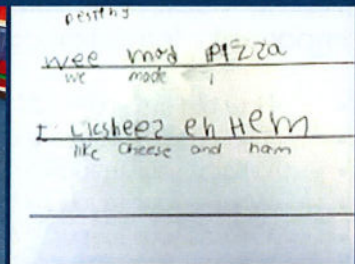 wee mad pizza
we made
I licsheez eh Hem
like cheese and ham